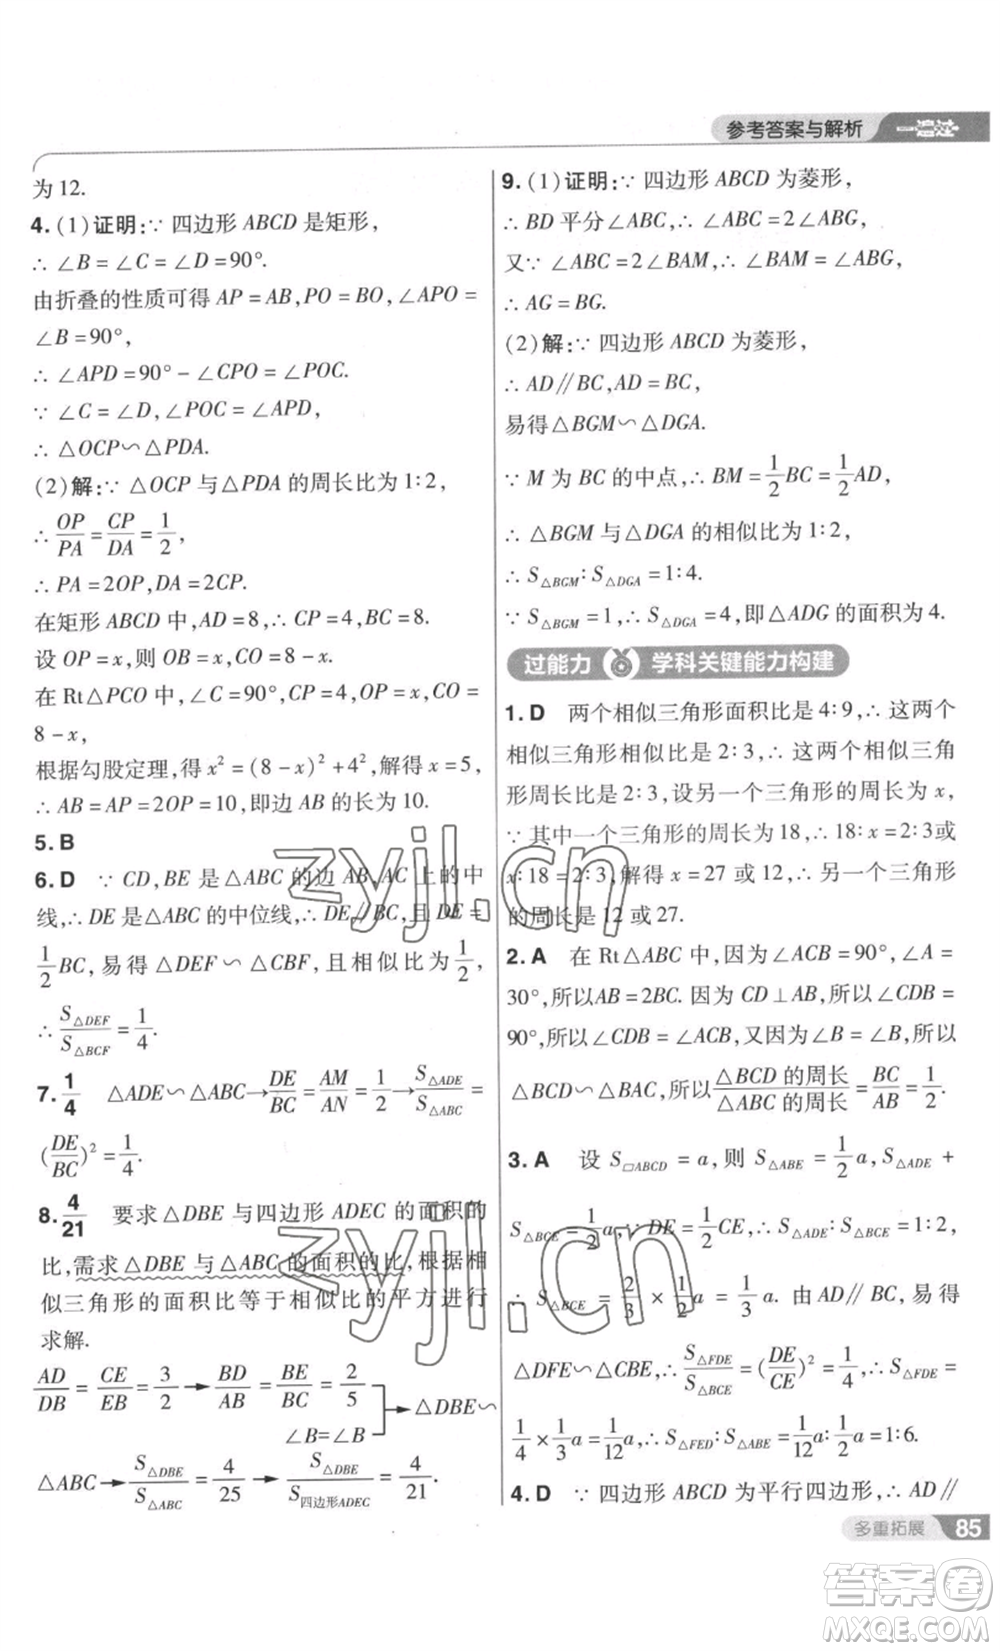 参考答案与解析 一遍过
为 12.
4. (1)证明:∵ 四边形 ABCD 是矩形,
∴ ∠B = ∠C = ∠D = 90°.
由折叠的性质可得 AP = AB, PO = BO, ∠APO =
∠B = 90°,
∴ ∠APD = 90° - ∠CPO = ∠POC.
∵ ∠C = ∠D, ∠POC = ∠APD,
∴ △OCP∽△PDA.
(2)解:∵ △OCP 与△PDA 的周长比为 1∶2,
∴ OP/PA = CP/DA = 1/2,
∴ PA = 2OP, DA = 2CP.
在矩形 ABCD 中, AD = 8, ∴ CP = 4, BC = 8.
设 OP = x, 则 OB = x, CO = 8 - x.
在 Rt△PCO 中, ∠C = 90°, CP = 4, OP = x, CO =
8 - x,
根据勾股定理, 得 x² = (8 - x)² + 4², 解得 x = 5,
∴ AB = AP = 2OP = 10, 即边 AB 的长为 10.
5. B
6. D ∵ CD, BE 是△ABC 的边 AB, AC 上的中
线, ∴ DE 是△ABC 的中位线, ∴ DE∥BC, 且 DE =
1/2 BC, 易得△DEF∽△CBF, 且相似比为 1/2,
∴ S△DEF/S△BCF = 1/4.
7. 1/4 △ADE∽△ABC→DE/BC = AM/AN = 1/2→S△ADE/S△ABC =
(DE/BC)² = 1/4.
8. 4/21 要求△DBE 与四边形 ADEC 的面积的
比, 需求△DBE 与△ABC 的面积的比, 根据相
似三角形的面积比等于相似比的平方进行
求解.
AD/DB = CE/EB = 3/2→BD/AB = BE/BC = 2/5
∠B=∠B
→△DBE∽
△ABC→S△DBE/S△ABC = 4/25→S△DBE/S四边形ADEC = 4/21
9. (1)证明:∵ 四边形 ABCD 为菱形,
∴ BD 平分∠ABC, ∴ ∠ABC = 2∠ABG,
又∵ ∠ABC = 2∠BAM, ∴ ∠BAM = ∠ABG,
∴ AG = BG.
(2)解:∵ 四边形 ABCD 为菱形,
∴ AD∥BC, AD = BC,
易得△BGM∽△DGA.
∵ M 为 BC 的中点, ∴ BM = 1/2 BC = 1/2 AD,
∴ △BGM 与△DGA 的相似比为 1∶2,
∴ S△BGM∶S△DGA = 1∶4.
∵ S△BGM = 1, ∴ S△DGA = 4, 即△ADG 的面积为 4.
过能力 学科关键能力构建
1. D 两个相似三角形面积比是 4∶9, ∴ 这两个
相似三角形相似比是 2∶3, ∴ 这两个相似三角
形周长比是 2∶3, 设另一个三角形的周长为 x,
∵ 其中一个三角形的周长为 18, ∴ 18∶x = 2∶3或
x∶18 = 2∶3, 解得 x = 27 或 12, ∴ 另一个三角形
的周长是 12 或 27.
2. A 在 Rt△ABC 中, 因为∠ACB = 90°, ∠A =
30°, 所以AB = 2BC. 因为 CD⊥AB, 所以∠CDB =
90°, 所以∠CDB = ∠ACB, 又因为∠B = ∠B, 所以
△BCD∽△BAC, 所以△BCD 的周长/△ABC 的周长 = BC/AB = 1/2.
3. A 设 S□ABCD = a, 则 S△ABE = 1/2 a, S△ADE +
S△BCE = 1/2 a, ∵ DE = 1/2 CE, ∴ S△ADE∶S△BCE = 1∶2,
∴ S△BCE = 2/3 × 1/2 a = 1/3 a. 由 AD∥BC, 易得
△DFE∽△CBE, ∴ S△FDE/S△BCE = (DE/CE)² = 1/4, ∴ S△FDE =
1/4 × 1/3 a = 1/12 a, ∴ S△FED∶S△ABE = 1/12 a∶1/2 a = 1∶6.
4. D ∵ 四边形 ABCD 为平行四边形, ∴ AD∥
多重拓展 85
zyjl.cn
zyjl.cn
答案卷
MXQE.COM